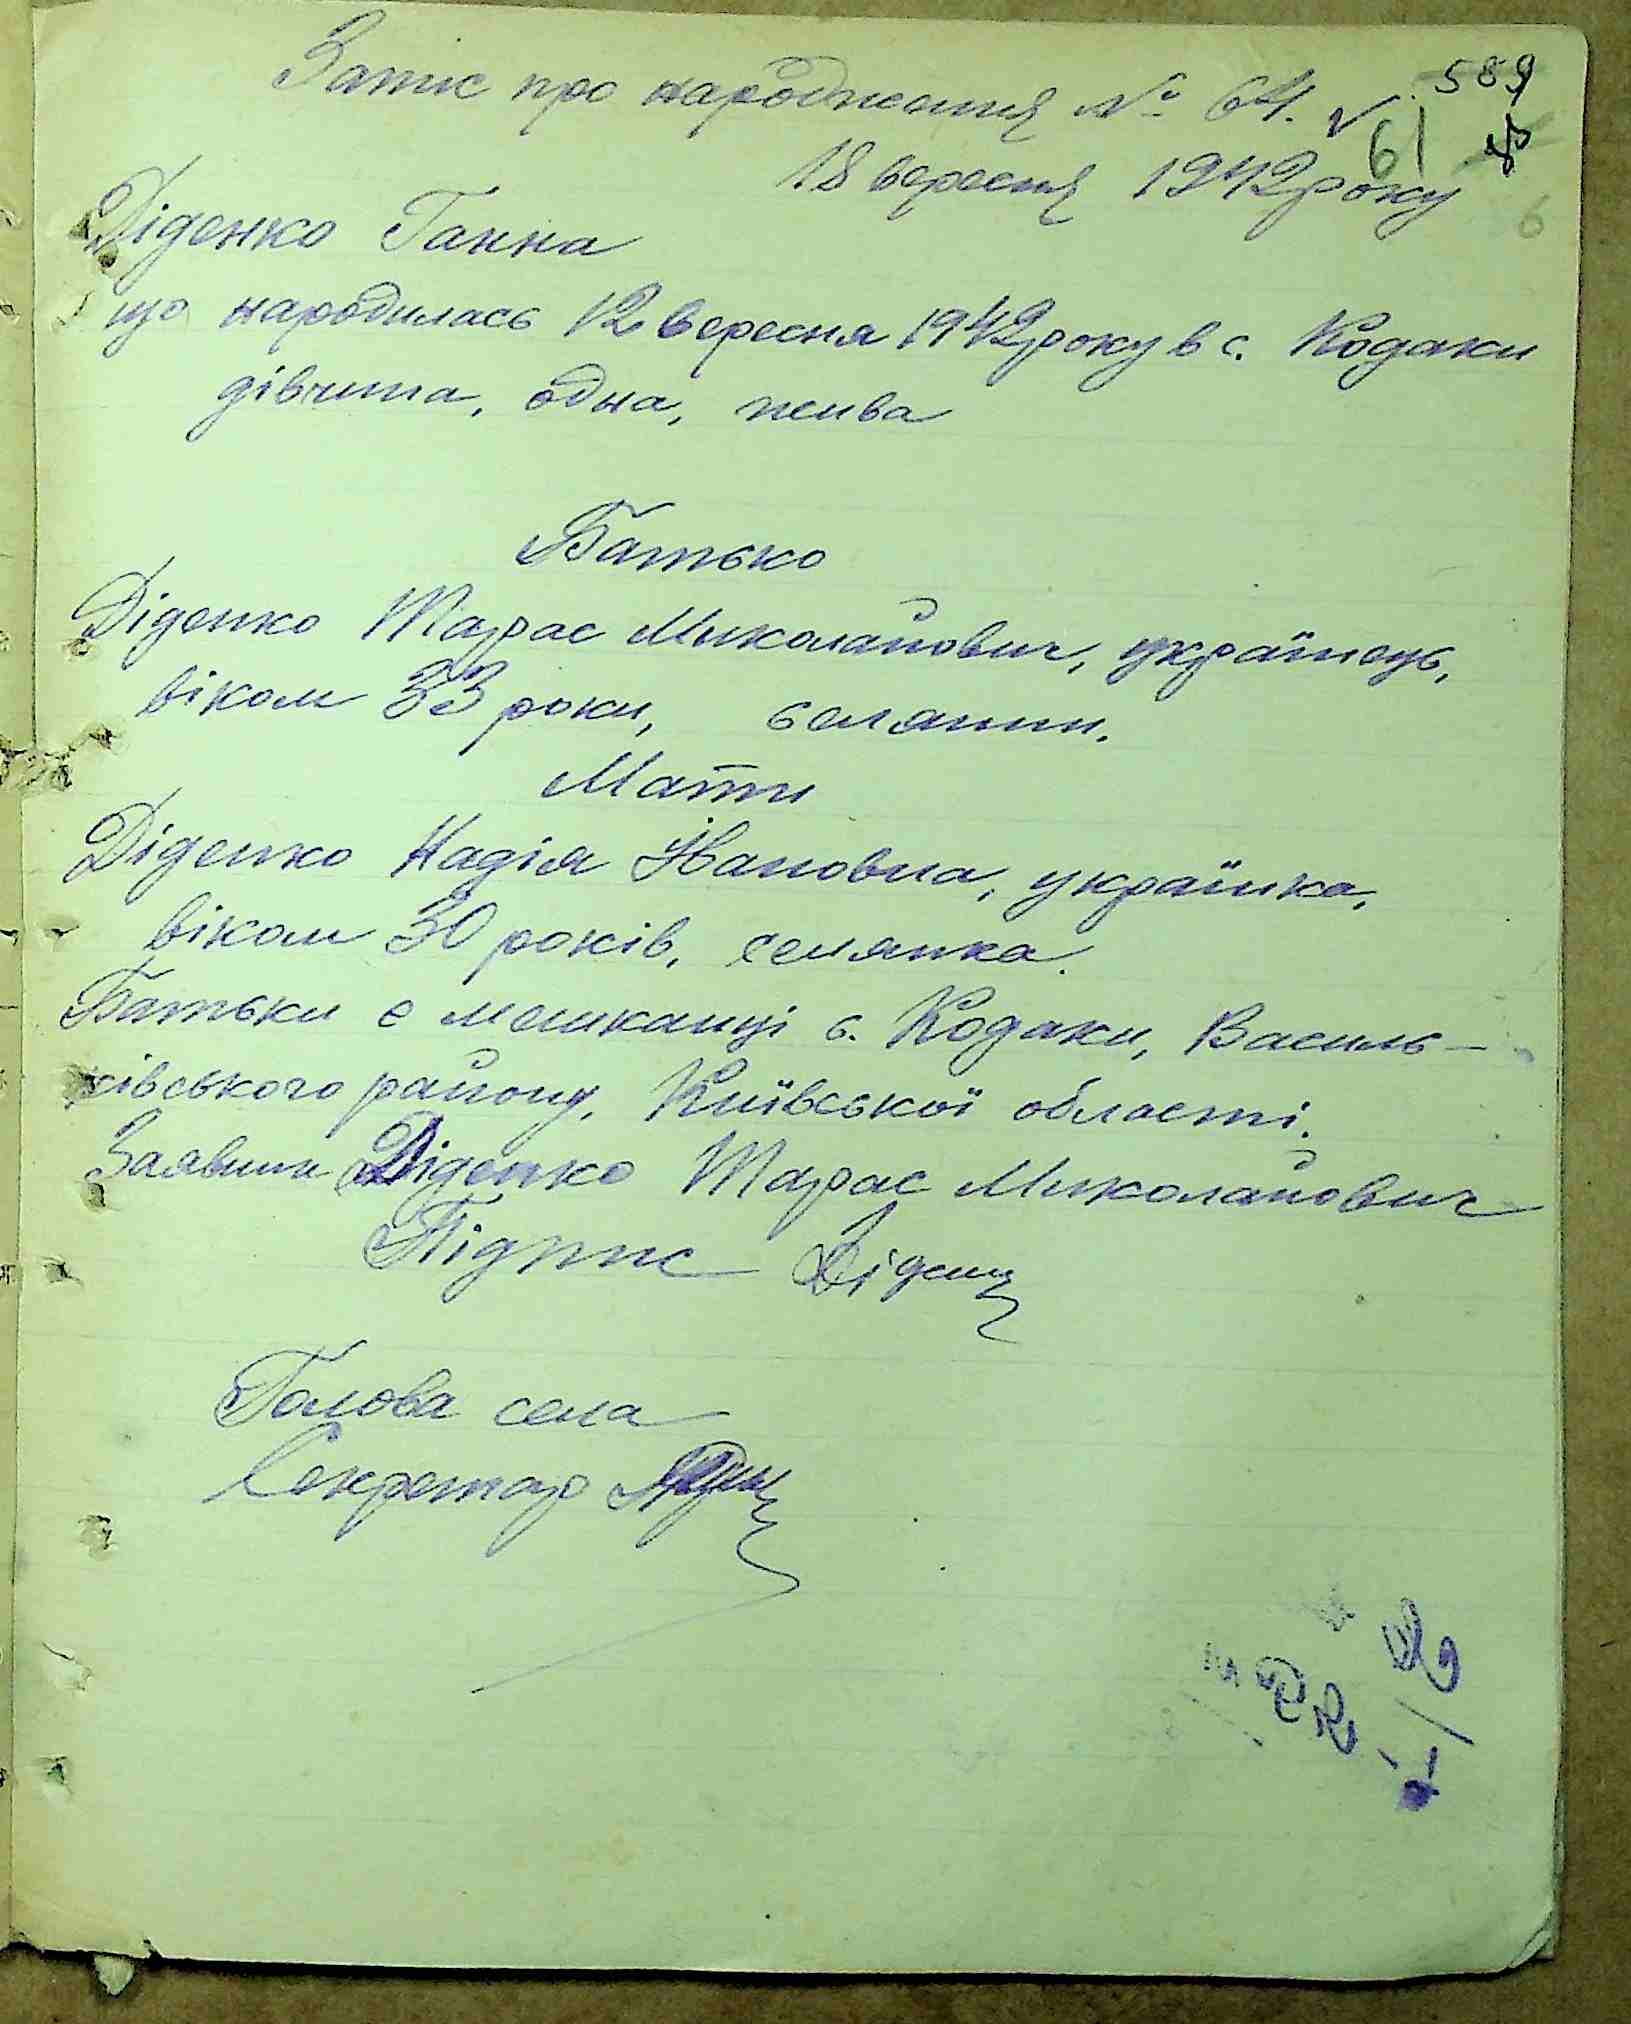 Запис про народження № 64.
589
61
18 вересня 1942 року
6
Діденко Ганна
що народилась 12 вересня 1942 року в с. Кодаки
дівчина, одна, жива
Батько
Діденко Тарас Миколайович, українець,
віком 33 роки, селянин.
Мати
Діденко Надія Івановна, українка,
віком 30 років, селянка.
Батьки є мешканці с. Кодаки, Василь-
ківського району, Київської області.
Заявник Діденко Тарас Миколайович
Підпис
Голова села
Секретар